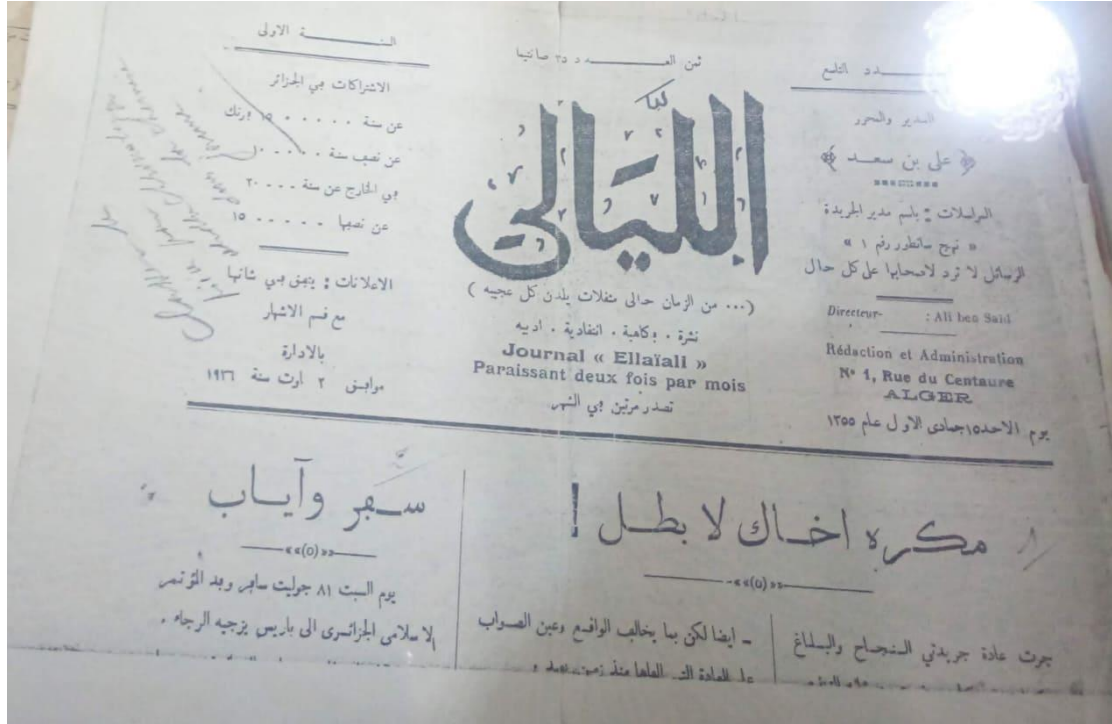 ـدد التاسع
المدير والمحرر
علي بن سعد
المراسلات : باسم مدير الجريدة
« نهج سانطور رقم ١ »
الرسائل لا ترد لاصحابها على كل حال
Directeur- : Ali ben Saâd
Rédaction et Administration
N° 1, Rue du Centaure
ALGER
يوم الاحد ١٥ جمادى الاول عام ١٣٥٥
ثمن العـــدد ٣٥ صانتيما
الليالي
(... من الزمان حبالى مثقلات يلدن كل عجيبه )
نشرة . فكاهية . انتقادية . ادبيه
Journal « Ellaïali »
Paraissant deux fois par mois
تصدر مرتين في الشهر
السنـــة الاولى
الاشتراكات في الجزائر
عن سنة . . . . . ١٥ فرنك
عن نصف سنة . . . . . ١٠
في الخارج عن سنة . . . ٢٠
عن نصفها . . . . . ١٥
الاعلانات : يتفق في شانها
مع قسم الاشهار
بالادارة
موافق ٢ اوت سنة ١٩٣٦
مكره اخاك لا بطل !
جرت عادة جريدتي النجاح والبلاغ
- ايضا لكن بما يخالف الواقع وعين الصواب
على العادة التي الفاها منذ زمن بعيد
سفر وآياب
يوم السبت ١٨ جوليت سافر وفد المؤتمر
الاسلامي الجزائري الى باريس يزجيه الرجاء .